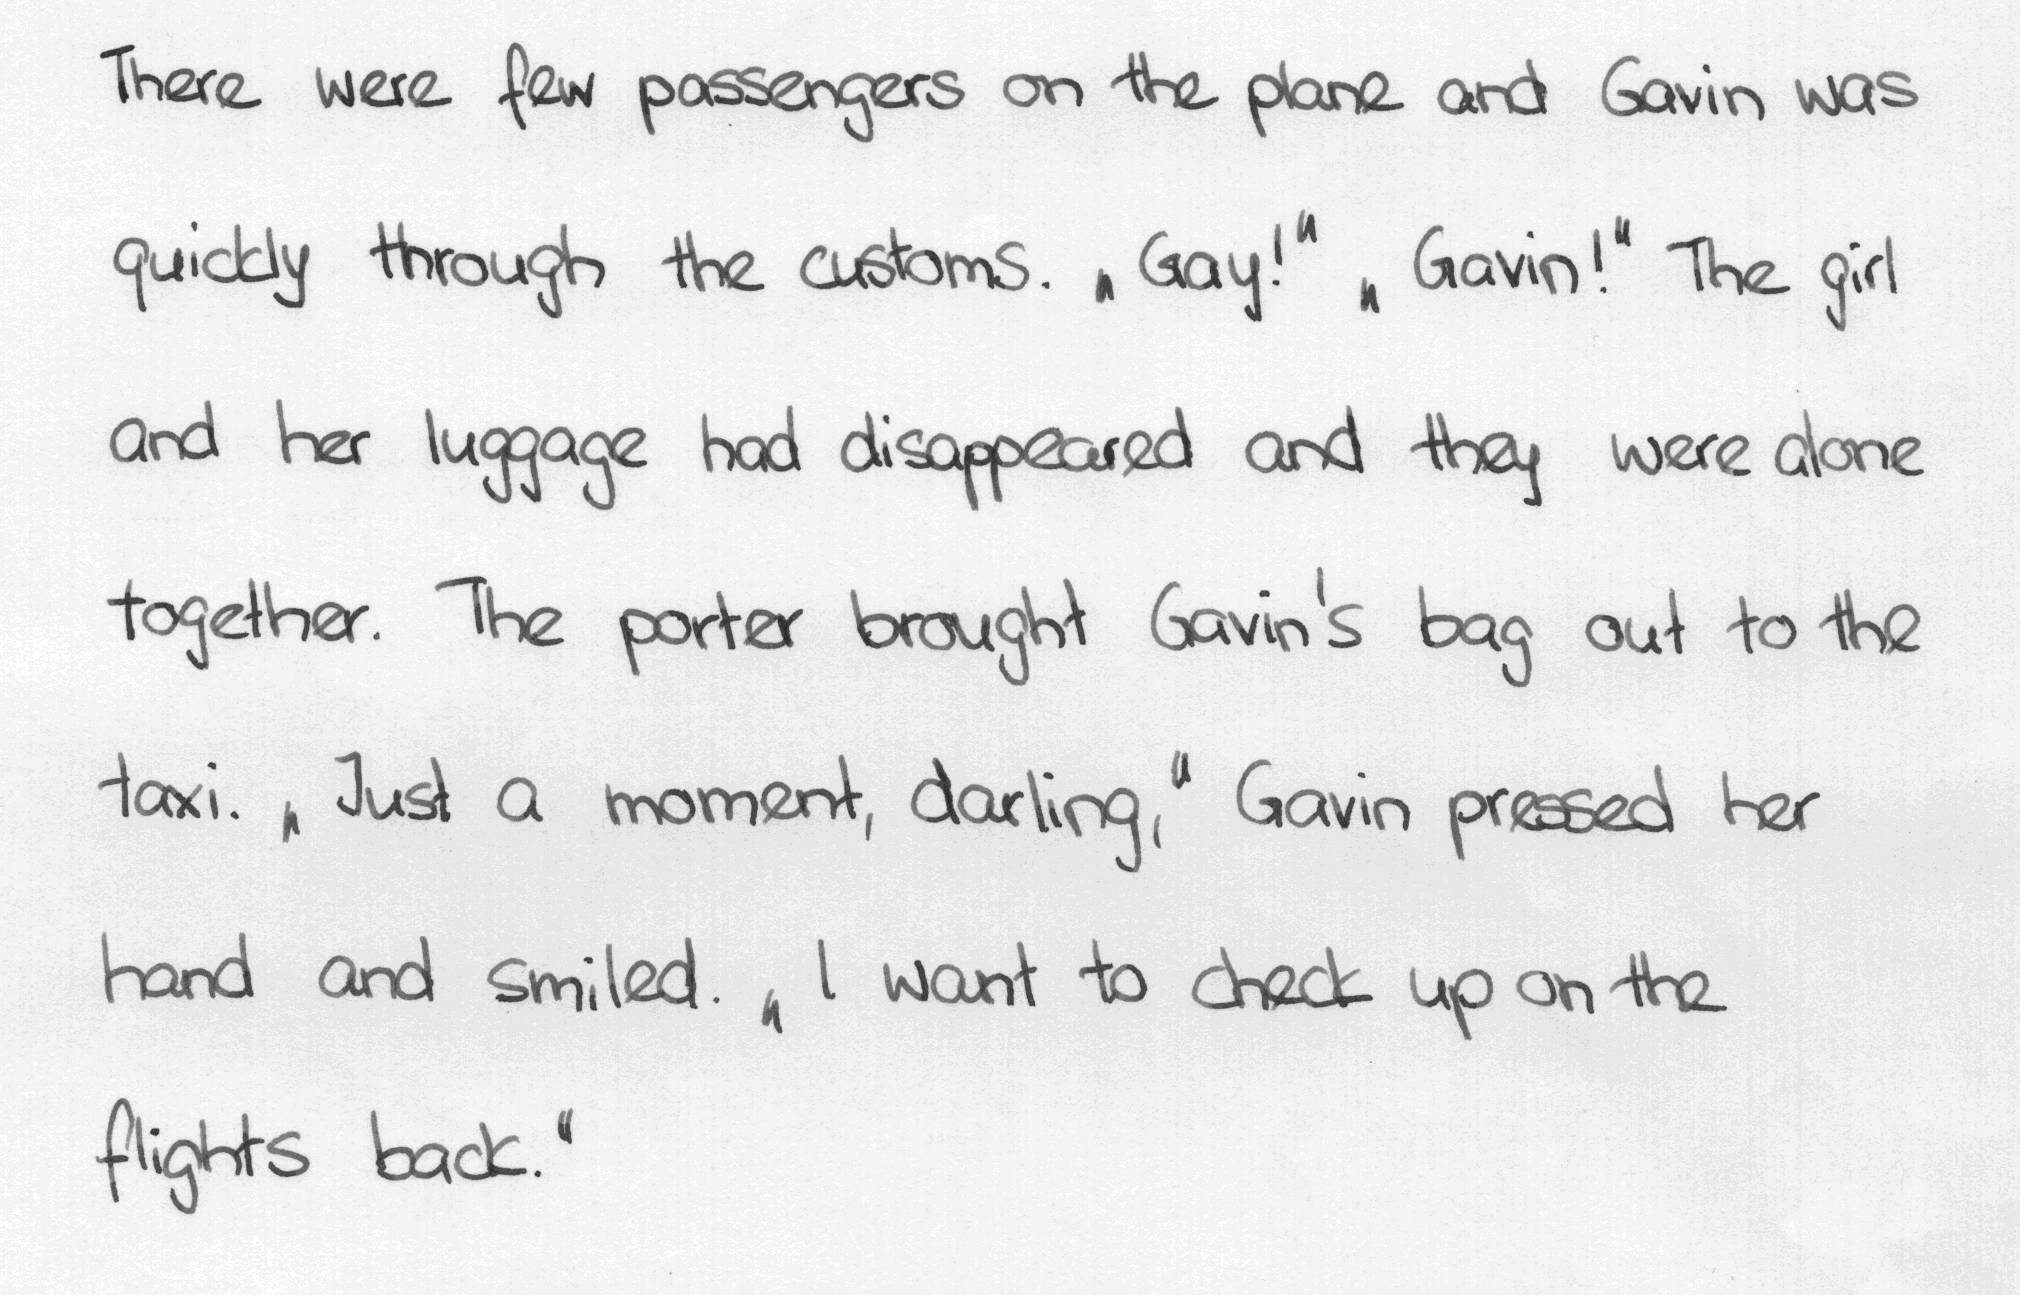 There were few passengers on the plane and Gavin was
quickly through the customs. „Gay!“ „Gavin!“ The girl
and her luggage had disappeared and they were alone
together. The porter brought Gavin's bag out to the
taxi. „Just a moment, darling,“ Gavin pressed her
hand and smiled. „I want to check up on the
flights back.“